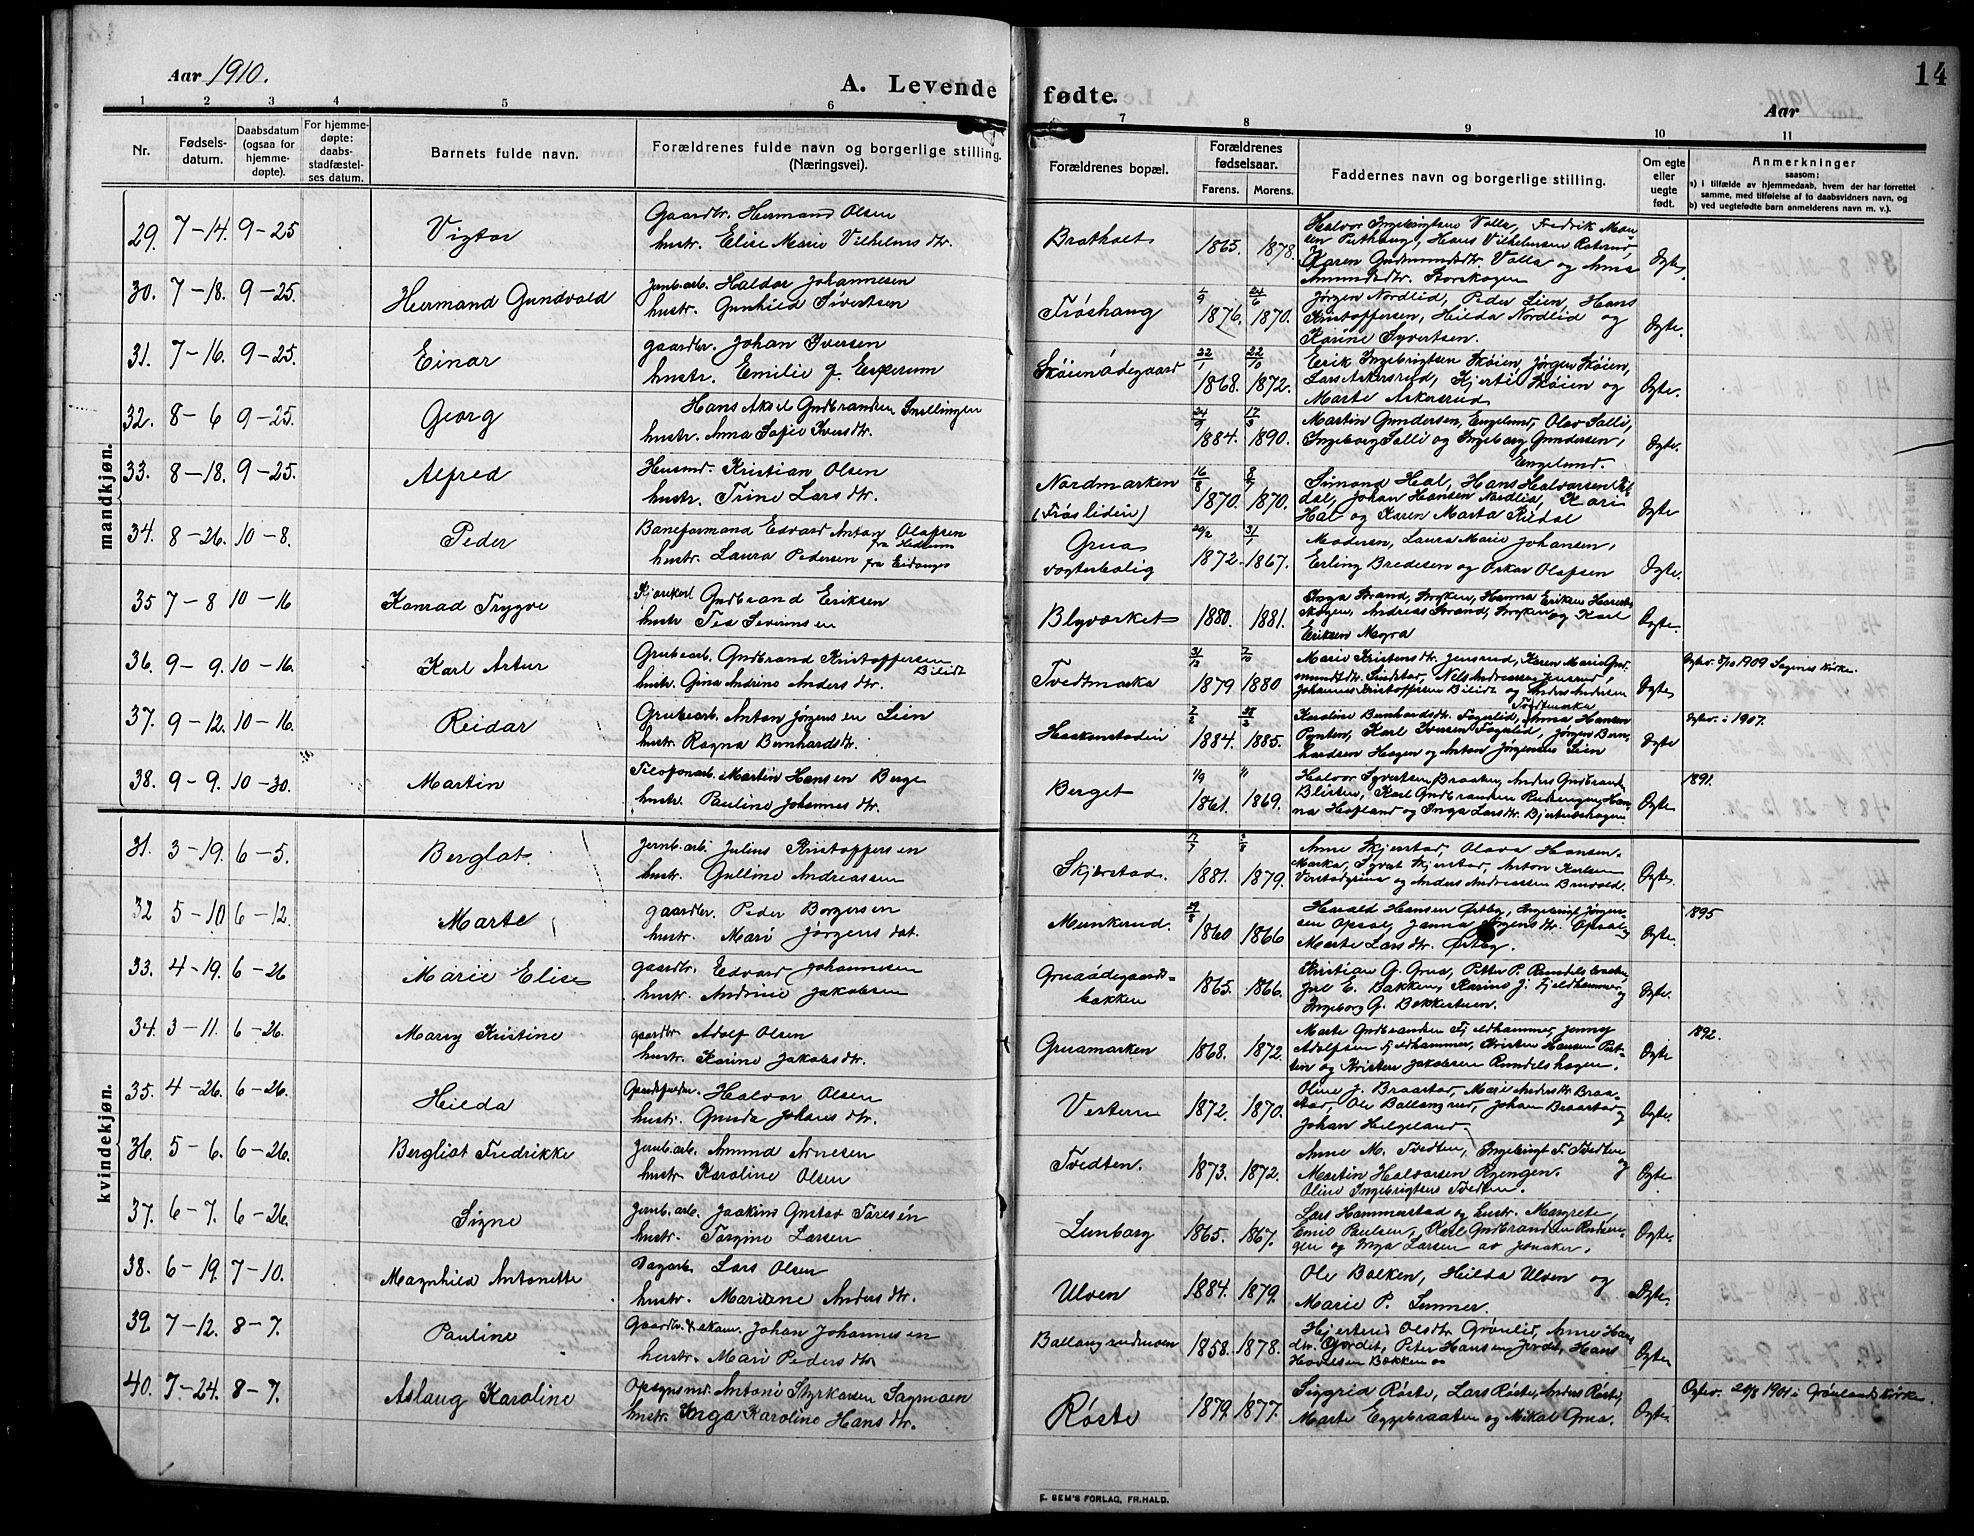 Aar 1910.
A. Levende fødte.
Aar
14
1 2 3 4 5 6 7 8 9 10 11
Nr.
Fødsels-
datum.
Daabsdatum
(ogsaa for
hjemme-
døpte).
For hjemme-
døpte:
daabs-
stadfæstel-
ses datum.
Barnets fulde navn.
Forældrenes fulde navn og borgerlige stilling.
(Næringsvei).
Forældrenes bopæl.
Forældrenes
fødselsaar.
Farens. Morens.
Faddernes navn og borgerlige stilling.
Om egte
eller
uegte
født.
Anmerkninger
saasom:
a) i tilfælde av hjemmedaab, hvem der har forrettet
samme, med tilføielse af to daabsvidners navn, og
b) ved uegtefødte barn anmelderens navn m. v.).
mandkjøn.
29. 7-14. 9-25 Vigtor
Gaardbr. Hermand Olsen
hustr. Elise Marie Vilhelms dtr.
Brathaet 1865. 1878.
Halvor Ingebrigtsen Valla, Fredrik
Hans Vilhelmsen
Karen Gudmundsdtr. Valla og Anna
Amundsdtr. Storskogen
Egte.
30. 7-18. 9-25. Hermand Gundvald
Jernb.arb. Haldor Johannesen
hustr. Gunhild Sivertsen
Trøshaug 1/9 1876. 24/6 1870.
Jørgen Nordlid, Peder Lien, Hans
Kristoffersen, Hilda Nordlid og
Karine Syvertsen.
Egte.
31. 7-16. 9-25. Einar
gaardbr. Johan Iversen
hustr. Emilie J. Esperum
Skøienødegaard 22/1 1868. 22/10 1872.
Erik Ingebrigtsen Skøien, Jørgen Skøien,
Lars Askersrud, Kjersti Skøien og
Marte Askersrud
Egte.
32. 8-6 9-25. Georg
Hans Aksel Gudbrandsen Snellingen
hustr. Anna Sofie Iversdtr.
24/9 1884. 17/3 1890.
Martin Gundersen, Engelund, Olav Salli,
Ingeborg Salli og Ingeborg Gundersen,
Engelund.
Egte.
33. 8-18. 9-25. Alfred
Husmd. Kristian Olsen
hustr. Trine Lars dtr.
Nordmarken
(Frøsliden)
16/8 1870. 8/7 1870.
Simond Hal, Hans Halvorsen Kil-
dal, Johan Hansen Nordlid, Kari
Hal og Karen Marta Kildal
Egte
34. 8-26. 10-8. Peder
Baneformand Edvard Anton Olafsen
hustr. Laura Pedersen fra Eidanger
Grua
vogterbolig
20/2 1872. 31/1 1867.
Moderen, Laura Marie Johansen,
Erling Bredesen og Oskar Olafsen
Egte.
35 7-8 10-16 Konrad Trygve
Gudbrand Eriksen
hustr Tea Severinsen
Blyværket 1880. 1881.
Inga Strand, Hanna Eriksen
Andreas Strand, og Karl
Eriksen Myra
Egte.
36. 9-9. 10-16. Karl Artur
Grubearb. Gudbrand Kristoffersen Bilidt
hustr. Gina Andrine Anders dtr.
Tvedtmarka 31/12 1879 7/10 1880
Marie Kristensdtr. Jensrud, Karen Marie Gud-
mundsdtr. Nils Andreassen Jensrud,
Johannes Kristoffersen Bilidt og Anders Andersen
Tvedtmarka
Egte
Egtev. 3/10 1909 Sagenes kirke.
37. 9-12. 10-16. Reidar
Grubearb. Anton Jørgensen Lien
hustr. Ragna Bernhardsdtr.
Haakenstadeie 7/2 1884. 1885.
Karoline Bernhardsdtr. Fagerlid, Anna Hansen
Pynten, Karl Iversen Fagerlid, Jørgen Bern-
hardsen Hagen og Anton Jørgensen Lien
Egte
Egtev. i 1907.
38. 9-9. 10-30. Martin
Telefonarb. Martin Hansen Berge
hustr. Pauline Johannes dtr.
Berget 1861. 1869.
Halvor Syvertsen Braaten, Anders Gudbrands
Karl Gudbrandsen Han-
na Hofland og Inga Larsdtr. Bjertnæshagen
Egte
1891.
kvindekjøn.
31. 3-19. 6-5. Bergliot.
Jernb.arb. Julius Kristoffersen
hustr. Gulline Andreassen
Skjerstad. 1881. 1879.
Anne Skjerstad, Olava Hansen
Marka, Syvert Skjerstad, Anton Karlsen
og Anders Andreassen
Egte.
32 5-10 6-12. Marte
gaardbr. Peder Borgersen
hustr. Mari Jørgens dat.
Munkerud. 29/8 1860 1866
Harald Hansen Østby, Ingebrigt Jørgen-
sen Opsal, Janna Jørgensdtr. Opsal og
Marte Larsdtr. Østby.
Egte.
1895
33. 4-19. 6-26 Marie Elise
gaardbr. Edvard Johannesen
hustr. Andrine Jakobsen
Gruaødegaards-
bakken
1865. 1866.
Kristian G. Grua, Petter P.
E. Bakken, Karine J. Fjeldhammer og
Ingeborg G. Bakkestuen.
Egte.
34. 3-11. 6-26. Mary Kristine
gaardbr. Adolf Olsen
hustr. Karine Jakobsdtr.
Gruamarken 1868. 1872.
Marte Gudbrandsen Fjeldhammer, Jenny
Adolfsen Fjeldhammer, Kristen Hansen
og Kristen Jakobsen Rundelshagen.
Egte
1892.
35. 4-26. 6-26. Hilda
Halvor Olsen
hustr. Gunda Johans dtr.
Vestern 1872. 1870.
Oline J. Braastad, Marie Andersdtr. Braa-
stad, Ole Ballangrud, Johan Braastad og
Johan Helgeland.
Egte.
36. 5-6. 6-26. Bergliot Fredrikke
Jernb.arb. Amund Arnesen
hustr. Karoline Olsen
Tvedten. 1873. 1872.
Anne M. Tvedten, Ingebrigt F. Tvedten og
Martin Halvorsen Ryengen.
Oline Ingebrigtsen Tvedten.
Egte.
37. 6-7. 6-26. Signe
Jernb.arb. Joakim Gustav Toresen
hustr. Torgine Larsen
Lunborg 1865. 1867.
Lars Hammerstad og hustr. Margrete,
Emil Paulsen, Karl Gudbrandsen Rudsen-
gen og Inga Larsen av Jevnaker.
Egte.
38. 6-19. 7-10. Magnhild Antonette
Dagarb. Lars Olsen
hustr. Mariane Anders dtr.
Ulven 1884. 1879.
Ole Bakken, Hilda Ulven og
Marie P. Lunner.
Egte.
39. 7-12. 8-7. Pauline
Gaardbr. & skom. Johan Johannesen
hustr. Mari Peders dtr.
Ballangrudmoen 1858. 1878.
Olsdtr. Grønlid, Anne Hans
dtr. Gjordet, Peter Hansen Jordet, Hans
Hovelsen Bakken
Egte
40. 7-24. 8-7. Aslaug Karoline
Opsynsmd. Anton Styrkorsen Sagmoen
hustr. Inga Karoline Hans dtr.
Røste 1879. 1877.
Sigrid Røste, Lars Røste, Anders Røste,
Marte Eggebraaten og Mikal Grua.
Egte
Egtev. 20/8 1901 i Grønlands kirke.
E. SEM'S FORLAG, FR.HALD.